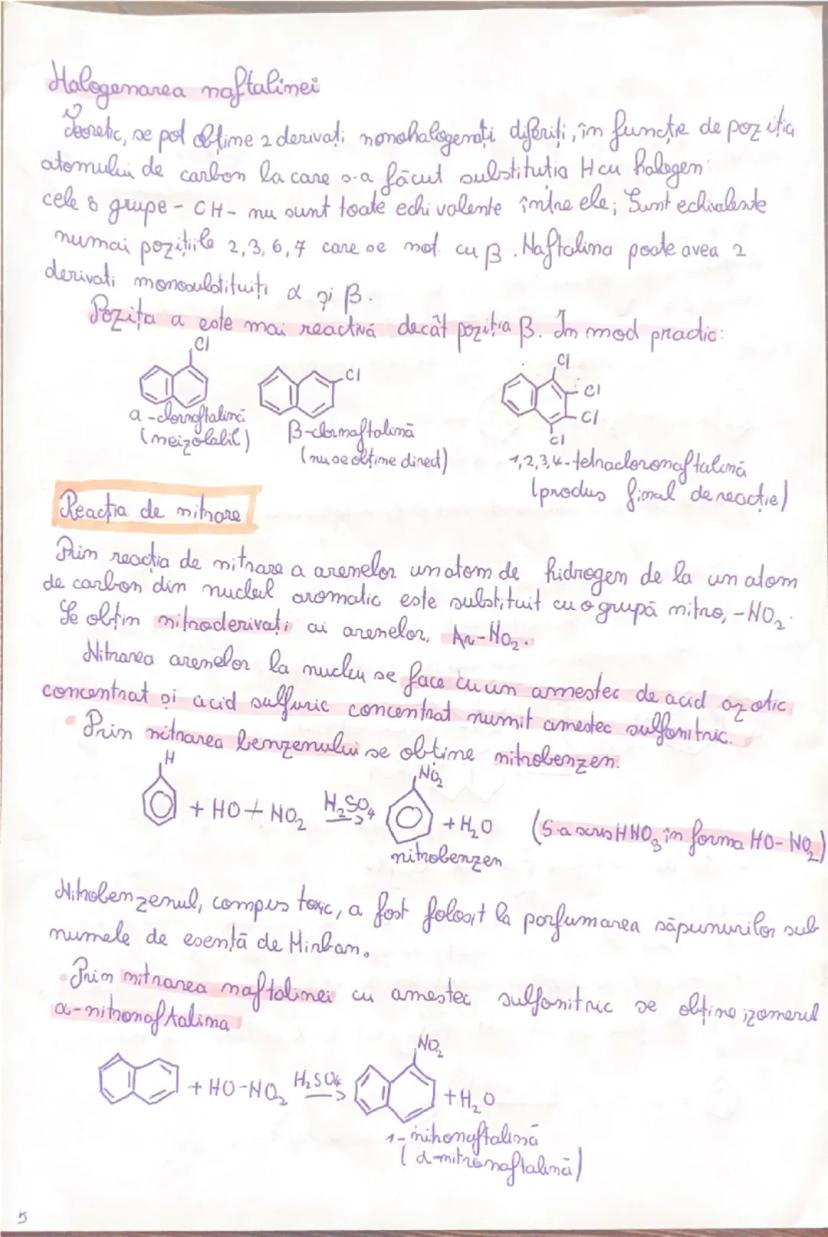 Halogenarea naftalinei
Teoretic, se pot obține 2 derivați monohalogenați diferiți, în funcție de poziția
atomului de carbon la care s-a făcut substituția H cu halogen
cele 8 grupe -CH- nu sunt toate echivalente între ele; Sunt echivalente
numai pozițiile 2, 3, 6, 7 care se not. cu β. Naftalina poate avea 2
derivați monosubstituiți α și β.
Poziția α este mai reactivă decât poziția β. În mod practic:
Cl
Cl
Cl
Cl
Cl
Cl
α-clornaftalină
(neizolabil)
β-clornaftalină
(nu se obține direct)
1,2,3,4-tetracloronaftalină
(produs final de reacție)
Reacția de nitrare
Prin reacția de nitrare a arenelor un atom de hidrogen de la un atom
de carbon din nucleul aromatic este substituit cu o grupă nitro, -NO2.
Se obțin nitroderivați ai arenelor, Ar-NO2.
Nitrarea arenelor la nucleu se face cu un amestec de acid azotic
concentrat și acid sulfuric concentrat numit amestec sulfonitric.
• Prin nitrarea benzenului se obține nitrobenzen.
H
NO2
+ HO+NO2 H2SO4 → + H2O (S-a scris HNO3 în forma HO-NO2)
nitrobenzen
Nitrobenzenul, compus toxic, a fost folosit la parfumarea săpunurilor sub
numele de esență de Mirban.
• Prin nitrarea naftalinei cu amestec sulfonitric se obține izomerul
α-nitronaftalina
NO2
+ HO-NO2 H2SO4 → + H2O
1-nitronaftalină
(α-nitronaftalină)
5